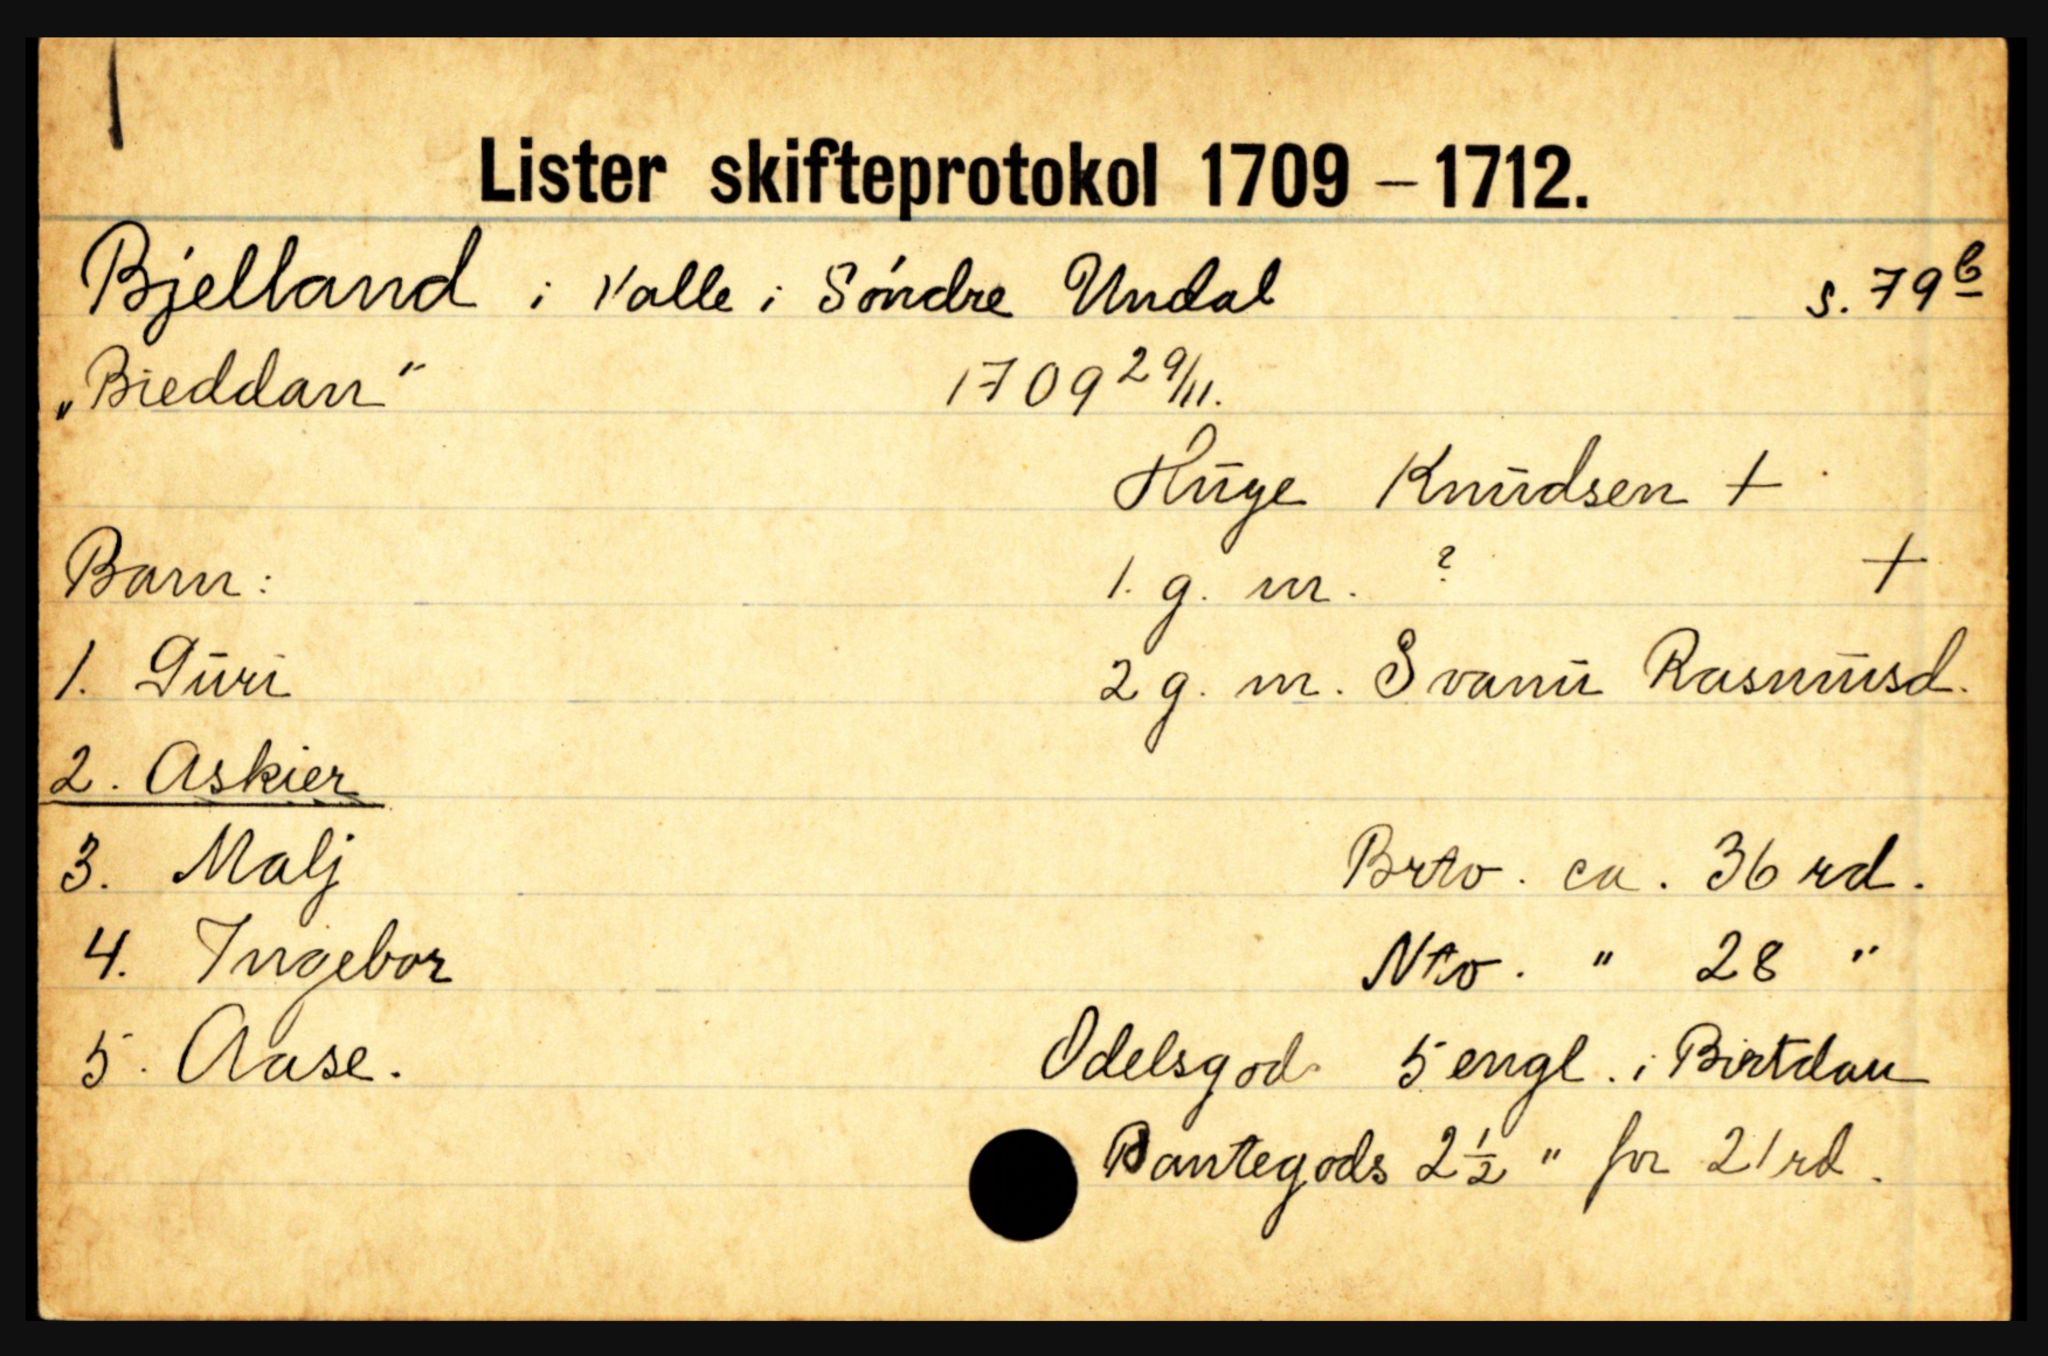 Lister skifteprotokol 1709 – 1712.
Bjelland i Valle i Söndre Undal s. 79 b
„Bieddan" 1709 29/11.
Huge Knudsen +
Barn: 1. g. m. ? +
1. Guri 2 g. m. Svanu Rasmusd.
2. Askier
3. Malj Brto. ca. 36 rd.
4. Ingebor Nto. " 28 "
5. Aase. Odelsgods 5 engl. i Birtdau
Pantegods 2 1/2 " for 21 rd.